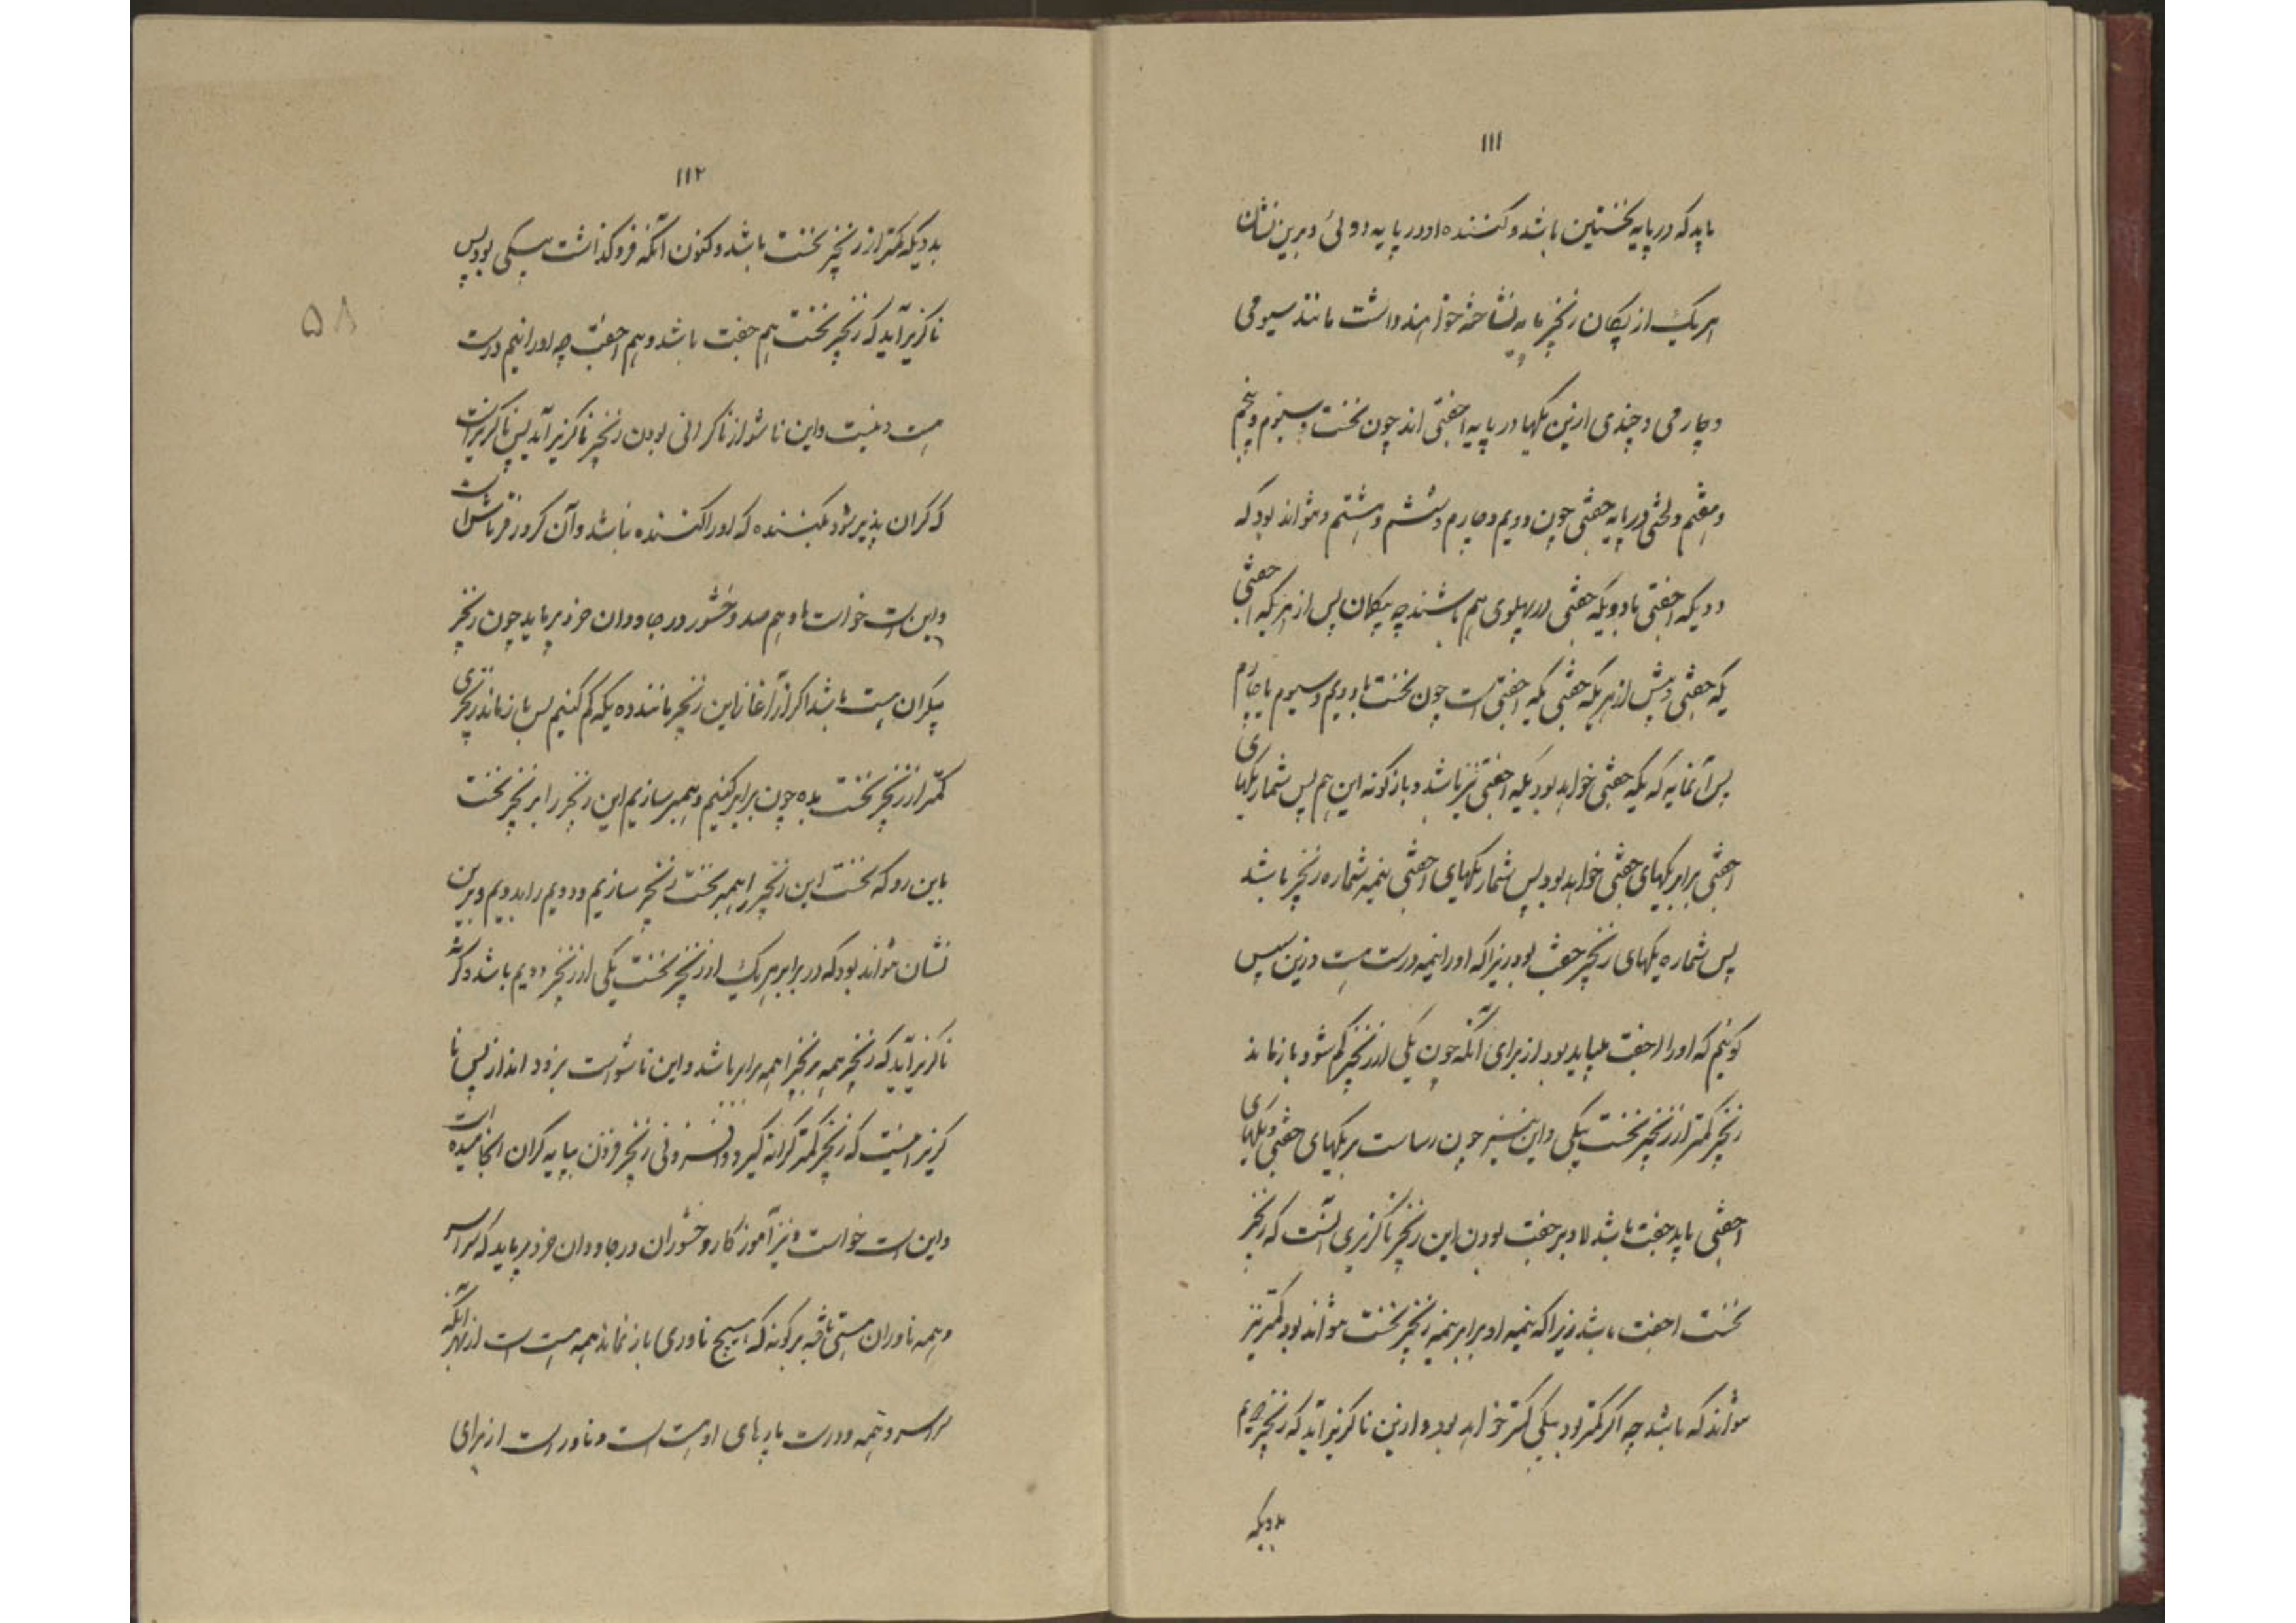 ۱۱۱
باید که در پایه نخستین باشد و کننده او در پایه دوئی و برین نشان
هر یک از یکان زنجیر مایه نشاخته خواهند داشت مانند سیومی
و چارمی و چندی ازین یکها در پایه اجفتی اند چون نخست و سیوم و پنجم
و هفتم و لختی در پایه جفتی چون دویم و چارم و ششم و هشتم و نتواند بود که
دو یکه اجفتی یا دو یکه جفتی در پهلوی هم باشند چه یکان پس از هر یکه اجفتی
یکه جفتی و پیش از هر یکه جفتی یکه اجفتی است چون نخست با دویم و سیوم با چارم
پس آنمایه که یکه جفتی خواهد بود یکه اجفتی نیز باشد و بازگونه این هم پس شمار یکهای
اجفتی برابر یکهای جفتی خواهد بود پس شمار یکهای اجفتی نیمه شماره زنجیر باشد
پس شماره یکهای زنجیر جفت بود زیرا که او را نیمه درست هست و زین سپس
گوئیم که او را اجفت میباید بود از برای آنکه چون یکی از زنجیر کم شود باز ماند
زنجیر کمتر از زنجیر نخست بیکی و این نیز چون رساست بر یکهای جفتی و یکهای
اجفتی باید جفت باشد لاد بر جفت بودن این زنجیر ناگزیری آنست که زنجیر
نخست اجفت باشد زیرا که نیمه او برابر نیمه زنجیر نخست نتواند بود کمتر نیز
نتواند که باشد چه اگر کمتر بود بیکی کمتر خواهد بود و ازین ناگزیر آید که زنجیر
بدویکه
۱۱۲
بدویکه کمتر از زنجیر نخست باشد و کنون آنکه فروگذاشت بیکی بود پس
ناگزیر آید که زنجیر نخست هم جفت باشد و هم اجفت چه او را نیم درست
هست و نیست و این ناشو از ناکرانی بودن زنجیر ناگزیر آید پس ناگزیر است
که کران پذیر شود بکننده که او را کننده نباشد و آن کروزفرتاش است
و این است خواست ماوهم صد و خشور در جاودان خرد فرماید چون زنجیر
بیکران هست باشد اگر از آغاز این زنجیر مانند ده یکه کم کنیم پس باز ماند زنجیری
کمتر از زنجیر نخست بده چون برابر کنیم و همبر سازیم این زنجیر را بر زنجیر نخست
باین رو که نخست این زنجیر را همبر نخست زنجیر سازیم و دویم را بدویم و برین
نشان نتواند بود که در برابر هر یک از زنجیر نخست یکی از زنجیر دویم باشد و گرنه
ناگزیر آید که زنجیر همه بر زنجیر همه برابر باشد و این ناشو است بزود انداز پس نا
گزیر است که زنجیر کمتر کرانه گیرد و افزونی زنجیر فزون بپایه کران انجامیده است
و این است خواست و نیز آموزگار و خشوران در جاودان خرد فرماید که سراسر
و همه ناوران هستی یافته بر گونه که هیچ ناوری باز نماند همه هست است از بهر آنکه
سراسر و همه و درست پارهای او هست است و ناور است از برای
۵۸